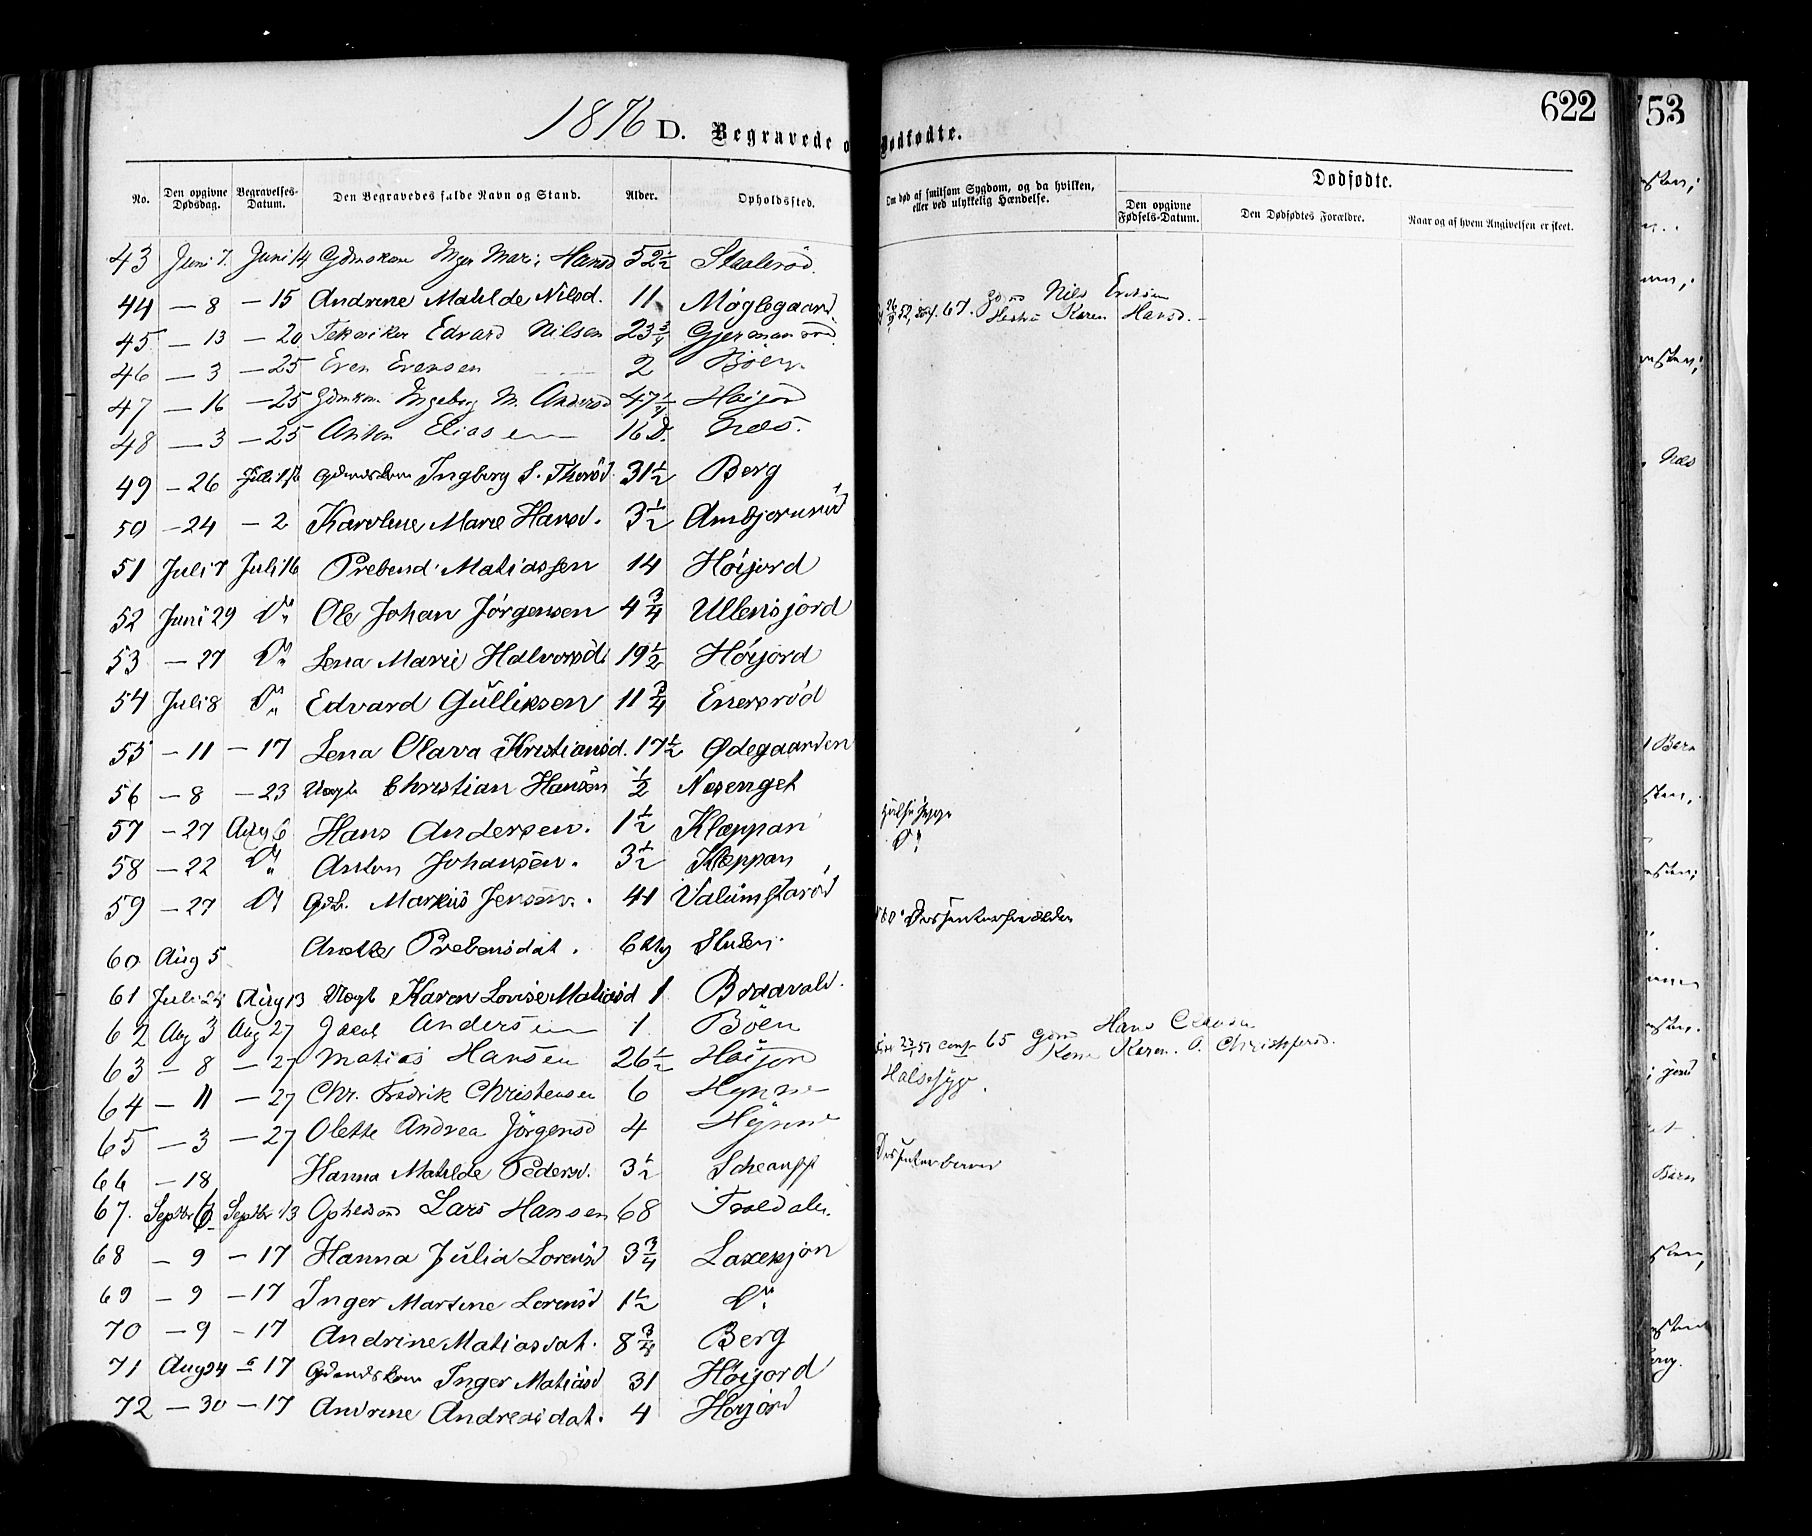 1876 D. Begravede o Dødfødte. 622 53
No. Den opgivne Dødsdag. Begravelses-Datum. Den Begravedes fulde Navn og Stand. Alder. Opholdssted. Om død af smitsom Sygdom, og da hvilken, eller ved ulykkelig Hændelse. Dødfødte.
Den opgivne Fødsels-Datum. Den Dødfødtes Forældre. Naar og af hvem Angivelsen er skeet.
43 Juni 7. Juni 14 Gdmskone Inger Mari Hansd 52½ Stalerød.
44 — 8 — 15 Andrine Matilde Nilsd. 11 Møglegaard.
45 — 13 — 20 Edvard Nilsen 23¾ Nils Eriksen
Karen Hansd.
46 — 3 — 25 Even Evensen 2 Böen.
47 — 16 — 25 Gdmkone Ingeborg M. Andersd 47¼ Høijord
48 — 3 — 25 Anton Eliasen 16 D. Næs.
49 — 26 Juli Ingborg S. Thorsd. 31½ Berg
50 — 24 — 2 Karoline Marie Hansd. 3½
51 Juli 7 Juli 16 Prebend Matiassen 14 Høijord
52 Juni 29 Do Ole Johan Jörgensen 4¾ Ullensjord
53 — 27 Do Lena Marie Halvorsd. 19½ Høijord
54 Juli 8 Do Edvard Gulliksen 11¾ Enersrød
55 — 11 — 17 Lena Olava Kristiansd. 17½ Ødegaarden
56 — 8 — 23 Uægte Christian Hansen ½ Nesenget
57 — 27 Aug 6 Hans Andersen. 1½ Kleppan Halssyge
58 — 22 Do Anton Johansen. 3½ Kleppan Do
59 — 27 Do Gdb. Markus Jensen. 41
60 Aug 5 Anette Prebensdat. Stulen.
61 Juli 24 Aug 13 Uægte Karen Lovise Matiasd 1 Bradvald.
62 Aug 3 Aug 27 Jacob Andersen 1 Böen
63 — 8 — 27 Matias Hansen 26½ Høijord conf 65 Hans
Kone Karen. O. Christophersd.
64 — 11 — 27 Chr. Fredrik Christensen 6 Hynne Halssyge.
65 — 3 — 27 Olette Andrea Jörgensd 4 Hynne
66 — 18 Hanna Matilde Pedersd. 3½ Dissenterbarn
67. Septbr Septbr 13 Opholdsmd Lars Hansen 68
68 — 9 — 17 Hanna Julia Lorensd 3¾ Laxesjon
69 — 9 — 17 Inger Martine Lorensd 1½ Do
70 — 9 — 17 Andrine Matiasdat. 8¾ Berg
71 Aug 24 — 17 Gdmdskone Inger Matiasd 31 Høijord
72 — 30 — 17 Andrine Andresdat. 4 Høijord